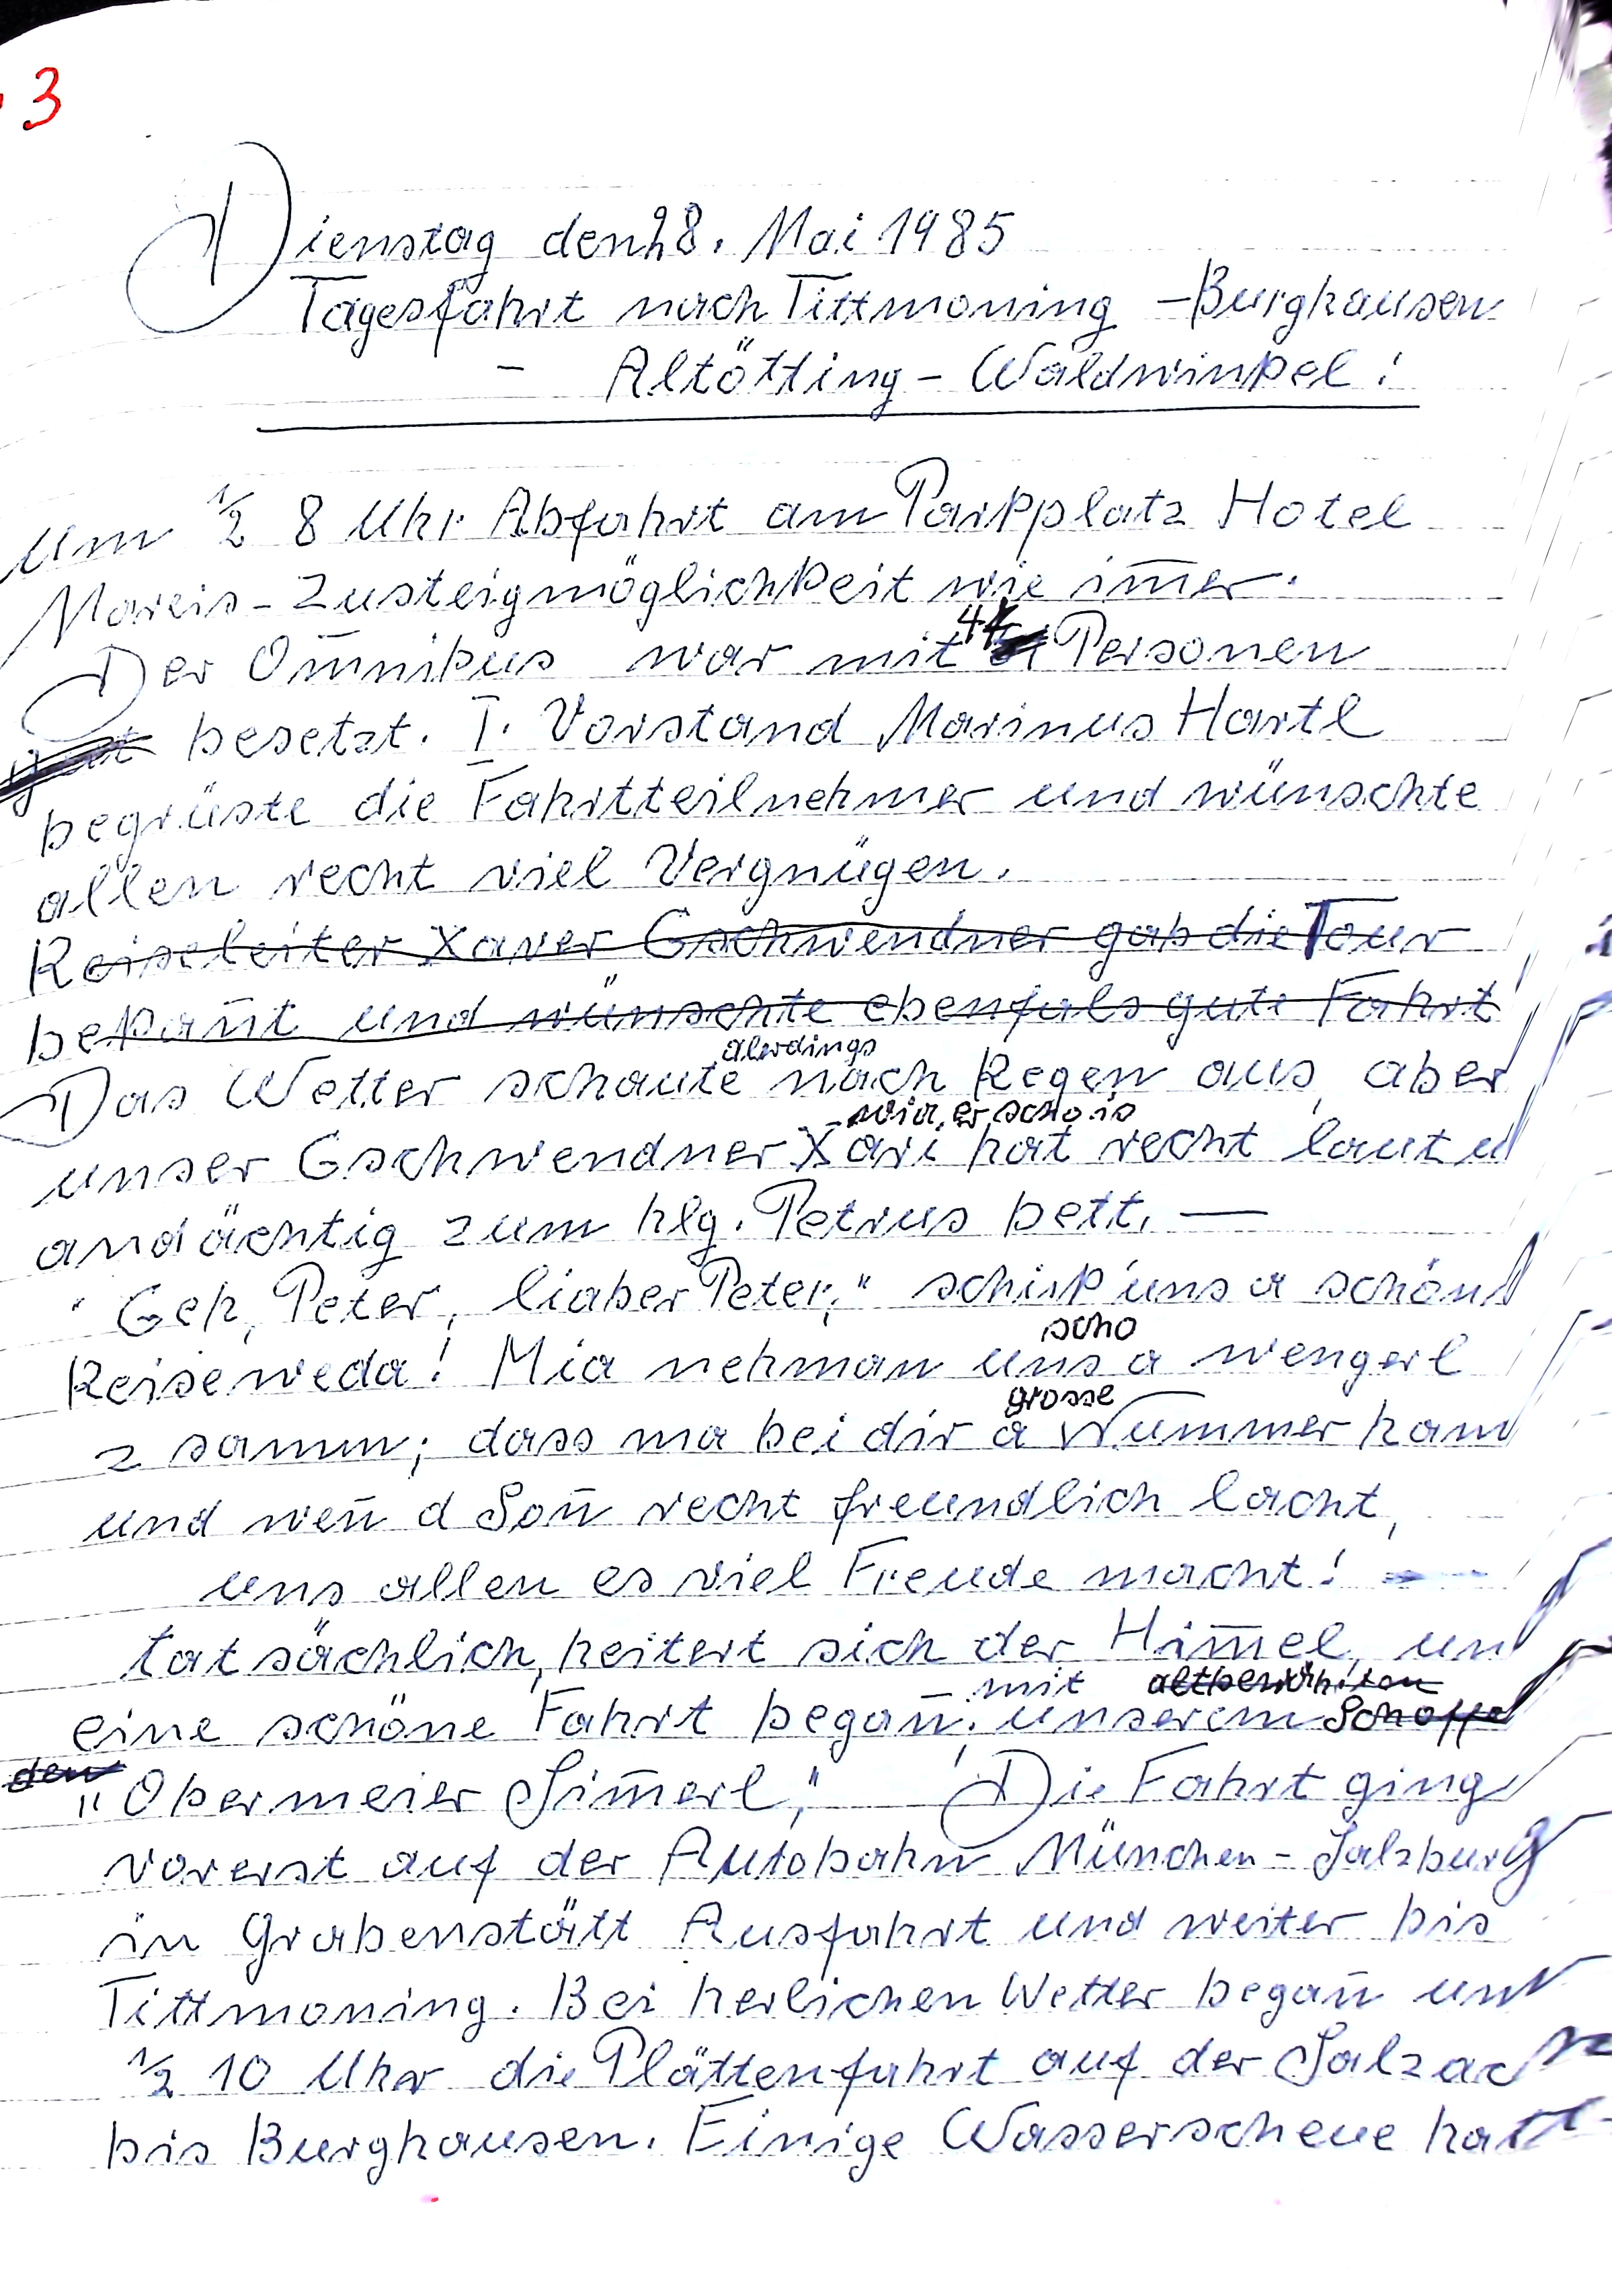 3
Dienstag den 28. Mai 1985
Tagesfahrt nach Tittmoning - Burghausen
- Altötting - Waldwinkel!
Um 1/2 8 Uhr Abfahrt am Parkplatz Hotel
Mareis - Zusteigmöglichkeit wie im̄er.
Der Om̄nibus war mit 44 Personen
gut besetzt. I. Vorstand Marinus Hartl
begrüste die Fahrtteilnehmer und wünschte
allen recht viel Vergnügen.
Reiseleiter Xaver Gschwendner gab die Tour
bekan̄t und wünschte ebenfals gute Fahrt
alerdings
Das Wetter schaute nach Regen aus, aber
wia er scho is
unser Gschwendner Xari hat recht laut u
andächtig zum hlg. Petrus bett. —
"Geh, Peter, liaber Peter," schick uns a schön
Reiseweda! Mia nehman uns a wengerl
scho
z samm; dass ma bei dir a Nummer ham
grosse
und wen̄ d Son̄ recht freundlich lacht,
uns allen es viel Freude macht! -
tatsächlich, heitert sich der Him̄el, un
mit altbewährten
eine schöne Fahrt began̄. unserem Schoffe
den
"Obermeier Sim̄erl," Die Fahrt ging
vorerst auf der Autobahn München - Salzburg
in Grabenstätt Ausfahrt und weiter bis
Tittmoning. Bei herlichen Wetter began̄ um
1/2 10 Uhr die Plättenfahrt auf der Salzach
bis Burghausen. Einige Wasserscheue hatt